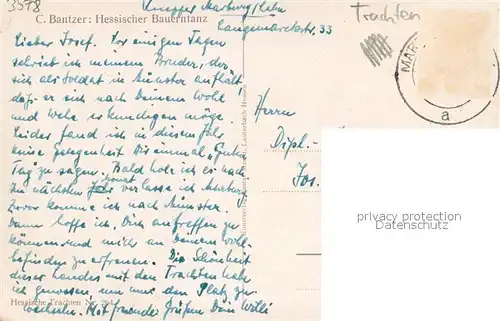 3578
Trachten
C. Bantzer: Hessischer Bauerntanz
Knepper Marburg/Lahn
33
MAR
a
Lieber Josef. Vor einigen Tagen
schrieb ich meinem Bruder, der
sich als Soldat in Münster aufhält
daß er sich nach Deinem Wohl
und Wehe erkundigen möge.
Leider fand ich in diesem Jahr
keine Gelegenheit Dir einmal „Guten
Tag" zu sagen. Bald hole ich es nach.
Im nächsten Monat verlasse ich Marburg
Zuvor komme ich nach Münster.
Dann hoffe ich, Dich antreffen zu
können und mich an Deinem Wohl-
befinden zu erfreuen. Die Schönheit
dieses Landes mit den Trachten habe
ich genossen um nun den Platz zu
wechseln. Mit freundl. Grüßen Dein Willi
Hessische Trachten Nr.
Lauterbach Hessen
Herrn
Dipl.-
Jos.
privacy protection
Datenschutz